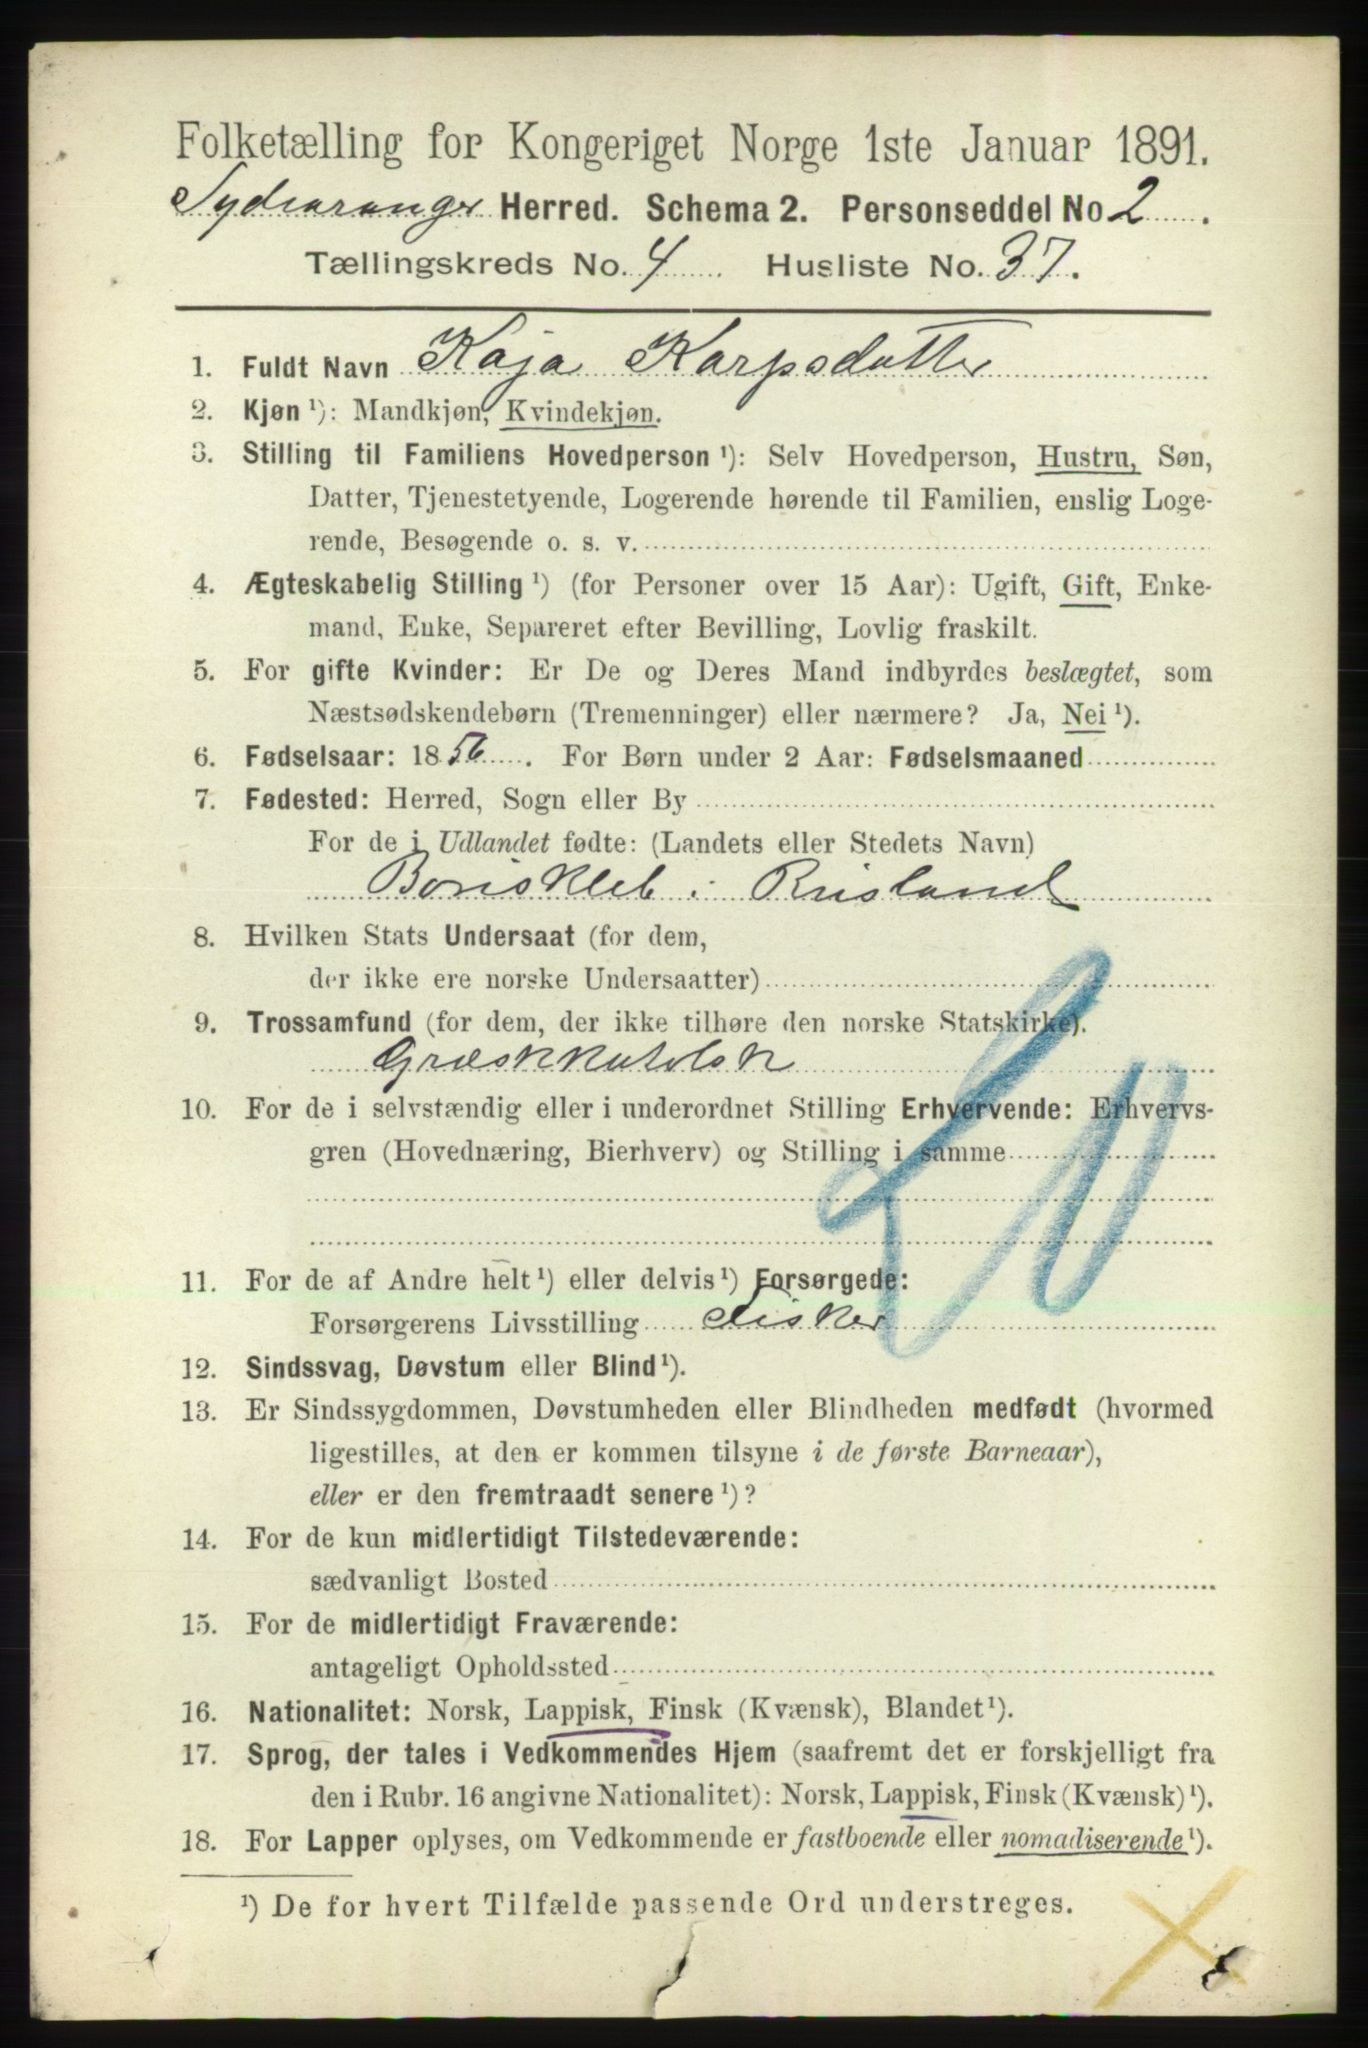 Folketælling for Kongeriget Norge 1ste Januar 1891.
Sydvaranger Herred. Schema 2. Personseddel No 2.
Tællingskreds No. 4 Husliste No. 37.
1. Fuldt Navn Kaja Karpsdatter
2. Kjøn ¹): Mandkjøn, Kvindekjøn.
3. Stilling til Familiens Hovedperson ¹): Selv Hovedperson, Hustru, Søn,
Datter, Tjenestetyende, Logerende hørende til Familien, enslig Loge-
rende, Besøgende o. s. v.
4. Ægteskabelig Stilling ¹) (for Personer over 15 Aar): Ugift, Gift, Enke-
mand, Enke, Separeret efter Bevilling, Lovlig fraskilt.
5. For gifte Kvinder: Er De og Deres Mand indbyrdes beslægtet, som
Næstsødskendebørn (Tremenninger) eller nærmere? Ja, Nei ¹).
6. Fødselsaar: 1856. For Børn under 2 Aar: Fødselsmaaned
7. Fødested: Herred, Sogn eller By
For de i Udlandet fødte: (Landets eller Stedets Navn)
Boriskleb i Rusland
8. Hvilken Stats Undersaat (for dem,
der ikke ere norske Undersaatter)
9. Trossamfund (for dem, der ikke tilhøre den norske Statskirke).
Græskkatolsk
10. For de i selvstændig eller i underordnet Stilling Erhvervende: Erhvervs-
gren (Hovednæring, Bierhverv) og Stilling i samme
11. For de af Andre helt ¹) eller delvis ¹) Forsørgede:
Forsørgerens Livsstilling Fisker
12. Sindssvag, Døvstum eller Blind ¹).
13. Er Sindssygdommen, Døvstumheden eller Blindheden medfødt (hvormed
ligestilles, at den er kommen tilsyne i de første Barneaar),
eller er den fremtraadt senere ¹)?
14. For de kun midlertidigt Tilstedeværende:
sædvanligt Bosted
15. For de midlertidigt Fraværende:
antageligt Opholdssted
16. Nationalitet: Norsk, Lappisk, Finsk (Kvænsk), Blandet ¹).
17. Sprog, der tales i Vedkommendes Hjem (saafremt det er forskjelligt fra
den i Rubr. 16 angivne Nationalitet): Norsk, Lappisk, Finsk (Kvænsk) ¹).
18. For Lapper oplyses, om Vedkommende er fastboende eller nomadiserende ¹).
¹) De for hvert Tilfælde passende Ord understreges.